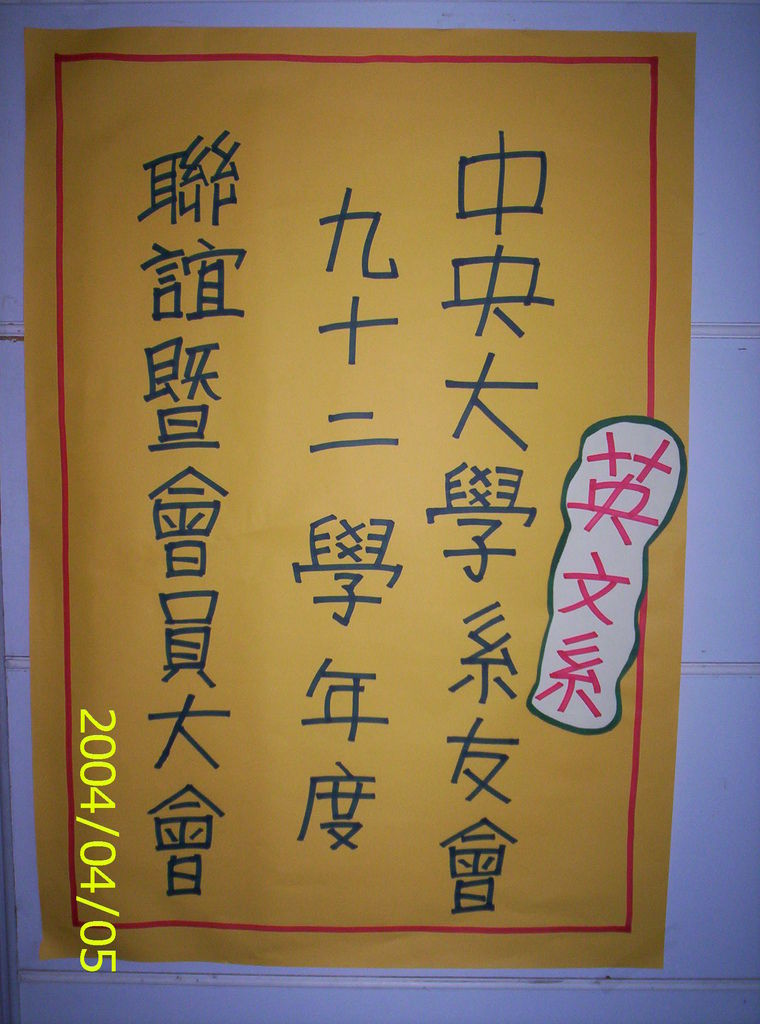 中央大學系友會
英文系
九十二學年度
聯誼暨會員大會
2004/04/05